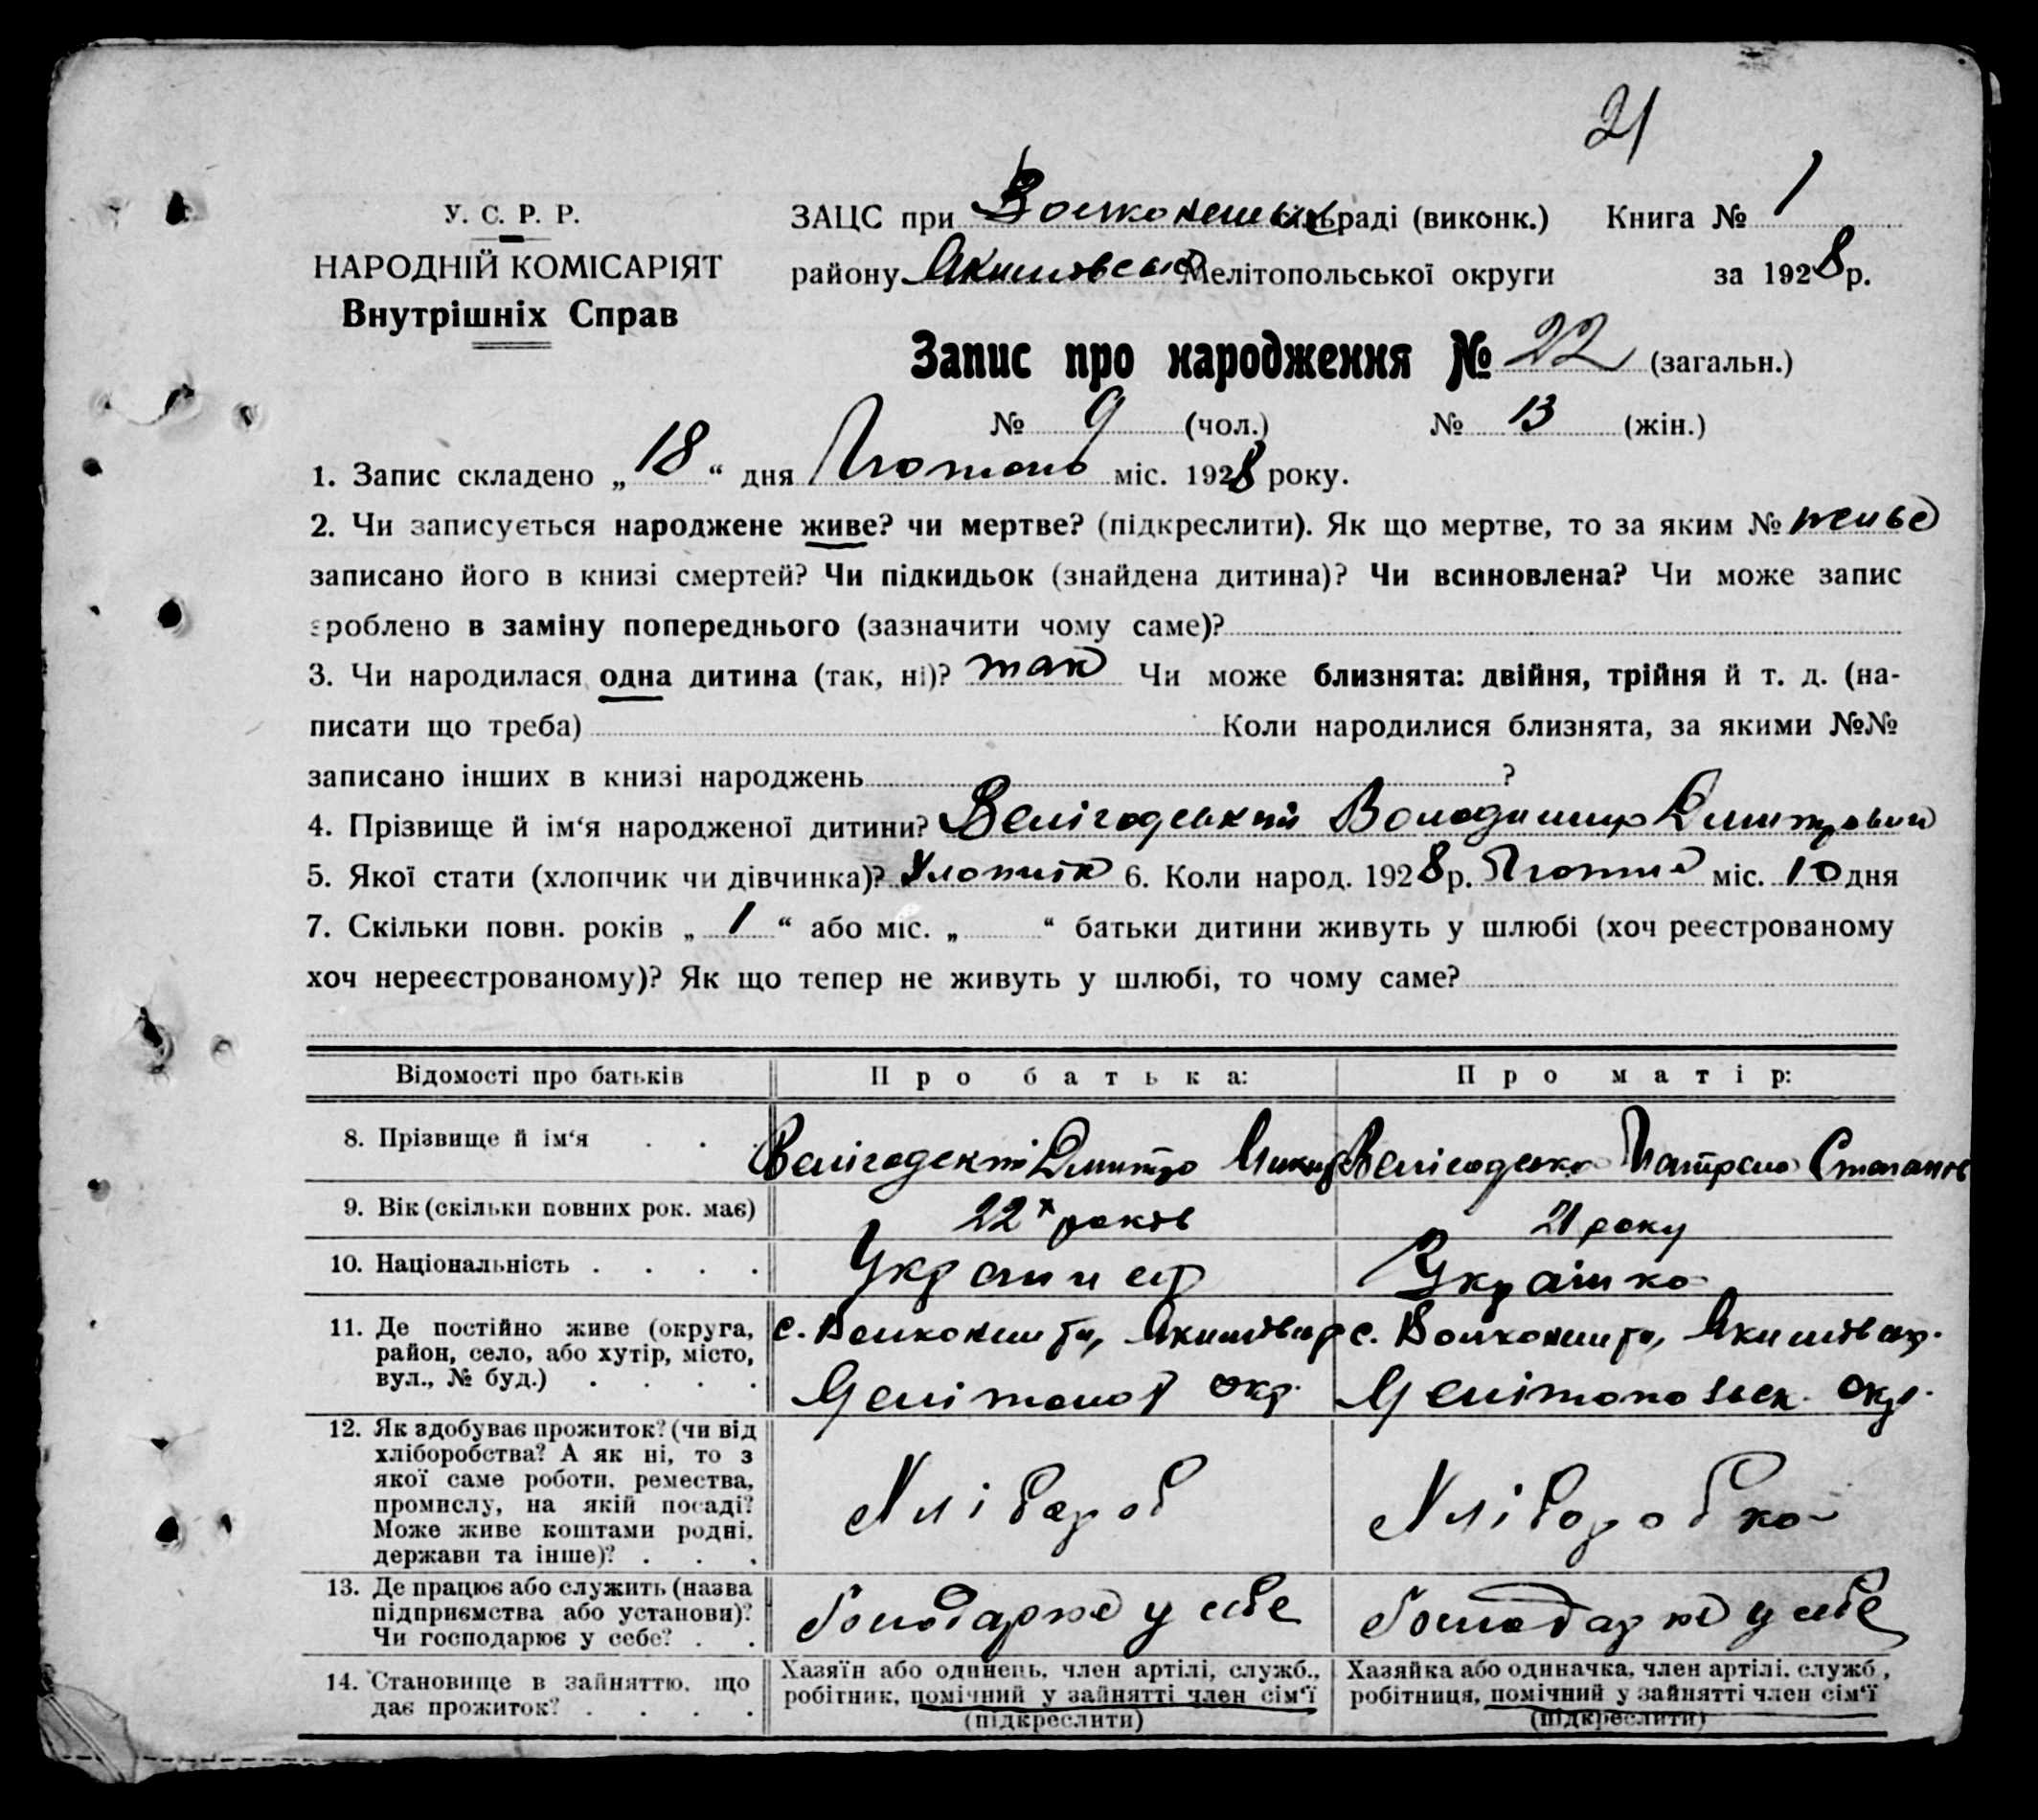 21
У. С. Р. Р.
НАРОДНІЙ КОМІСАРІЯТ
Внутрішніх Справ
ЗАЦС при сільраді (виконк.) Книга № 1
району Мелітопольської округи за 1928 р.
Запис про народження № 22 (загальн.)
№ 9 (чол.) № 13 (жін.)
1. Запис складено „ 18 “ дня Лютого міс. 1928 року.
2. Чи записується народжене живе? чи мертве? (підкреслити). Як що мертве, то за яким № живе
записано його в книзі смертей? Чи підкидьок (знайдена дитина)? Чи всиновлена? Чи може запис
зроблено в заміну попереднього (зазначити чому саме)?
3. Чи народилася одна дитина (так, ні)? так Чи може близнята: двійня, трійня й т. д. (на-
писати що треба) Коли народилися близнята, за якими №№
записано інших в книзі народжень ?
4. Прізвище й ім‘я народженої дитини? Велігодський Володимир Дмитрович
5. Якої стати (хлопчик чи дівчинка)? Хлопчик 6. Коли народ. 1928 р. Лютий міс. 10 дня
7. Скільки повн. років „ 1 “ або міс. „ “ батьки дитини живуть у шлюбі (хоч реєстрованому
хоч нереєстрованому)? Як що тепер не живуть у шлюбі, то чому саме?
Відомості про батьків Про батька: Про матір:
8. Прізвище й ім‘я . . . Велігодский Дмитро Велігодська Степанів
9. Вік (скільки повних рок. має) 22х років 21 року
10. Національність . . . . Українец Українка
11. Де постійно живе (округа,
район, село, або хутір, місто,
вул., № буд.) . . . .
Мелітопол окр. Мелітопольськ. окр.
12. Як здобуває прожиток? (чи від
хліборобства? А як ні, то з
якої саме роботи, ремества,
промислу, на якій посаді?
Може живе коштами родні,
держави та інше)? . . .
Хлібороб Хліборобка
13. Де працює або служить (назва
підприємства або установи)?
Чи господарює у себе? . .
Господарює у себе Господарює у себе
14. Становище в зайняттю, що
дає прожиток? . . . .
Хазяїн або одинець, член артілі, служб.,
робітник, помічний у зайнятті член сім‘ї
(підкреслити)
Хазяйка або одиначка, член артілі, служб ,
робітниця, помічний у зайнятті член сім‘ї
(підкреслити)